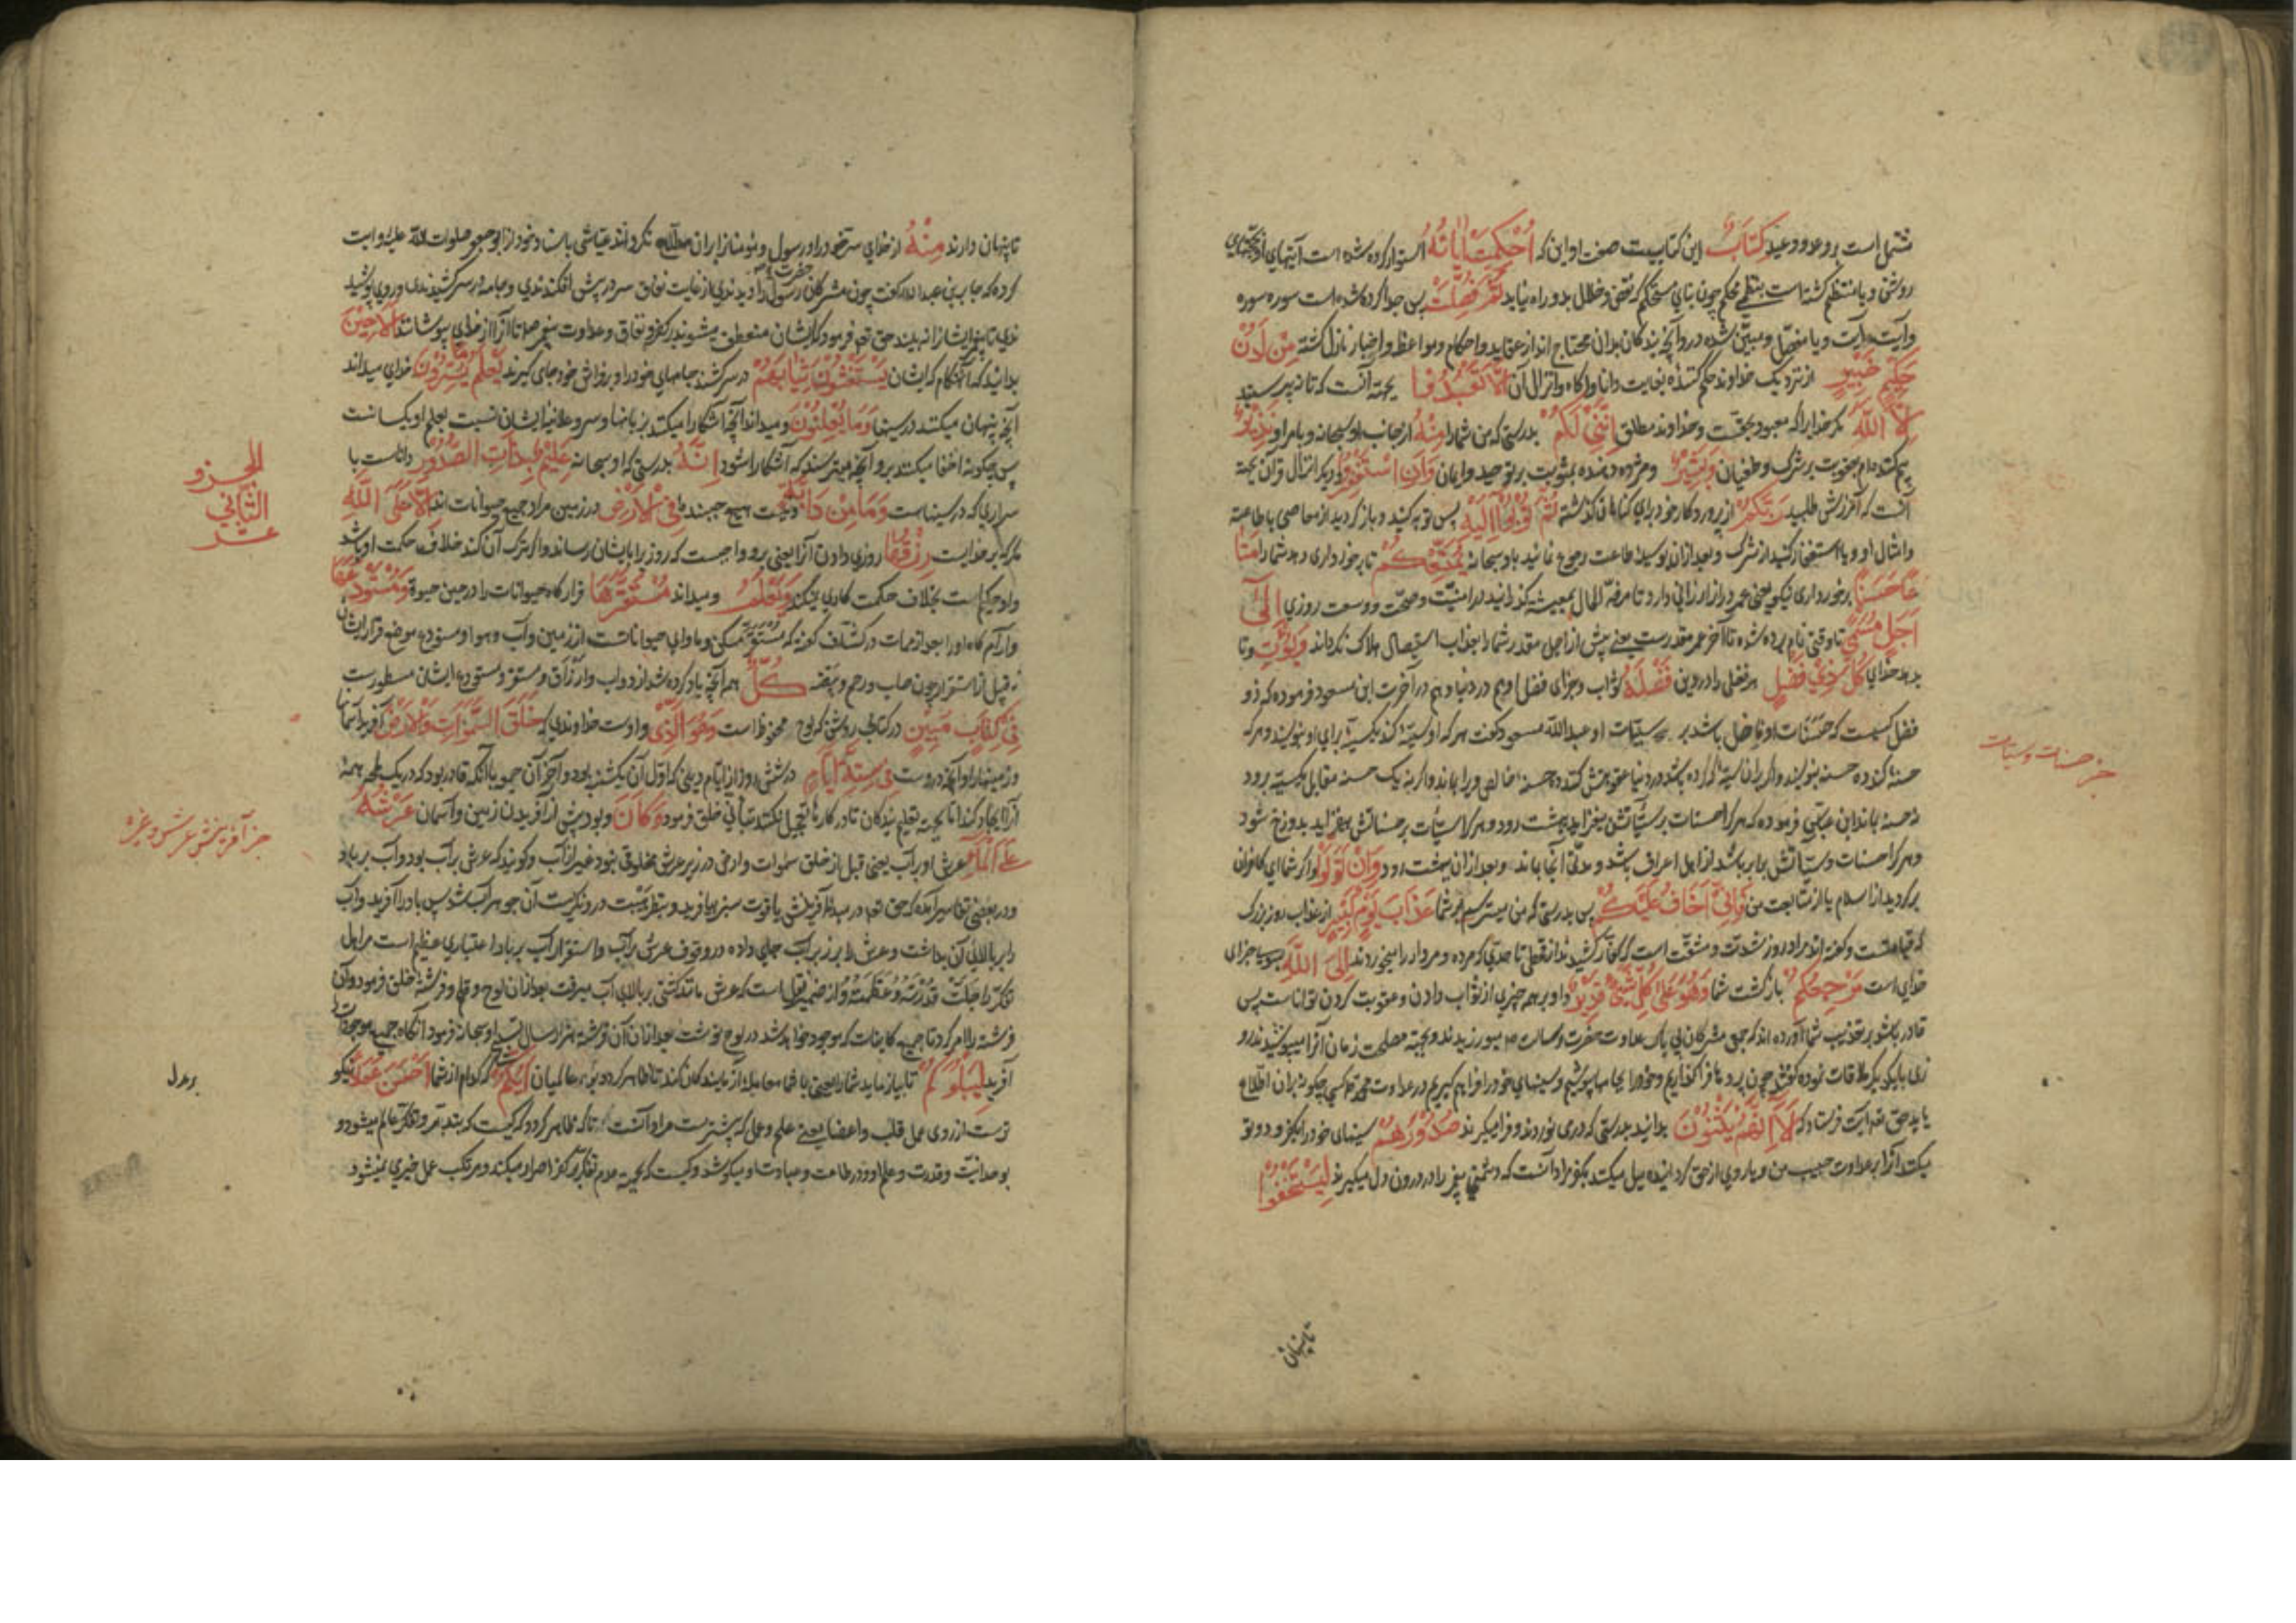 مشتمل است بر وعد و وعید كِتَابٌ این کتابیست صفت او این که أُحْكِمَتْ آيَاتُهُ استوار کرده شده است آیتهای او بحجتهای
روشن و یا منتظم کشته است بنظمی محکم چون بنای مستحکم که نقض و خلل بدو راه نیابد ثُمَّ فُصِّلَتْ پس جدا کرده شده است سوره سوره
وآیت آیت و یا مفصل و مبین شده در و آنچه بندکان بدان محتاج اند از عقاید و احکام و مواعظ و اخبار نازل کشته مِنْ لَدُنْ
حَكِيمٍ خَبِيرٍ از نزدیک خداوند حکم کننده بغایت دانا و آکاه و انزال آن أَلَّا تَعْبُدُوا بجهة آنست که تا نپرستید
إِلَّا اللَّهَ مکر خدایرا که معبود بحقست و خداوند مطلق إِنَّنِي لَكُمْ بدرستی که من شما را مِنْهُ از جانب او سبحانه و بامر او نَذِيرٌ
بیم کننده ام بعقوبت بر شرک و طغیان وَبَشِيرٌ و مژده دهنده بمثوبت بر توحید و ایمان وَأَنِ اسْتَغْفِرُوا و دیکر انزال قرآن بجهة
آنست که آمرزش طلبید رَبَّكُمْ از پروردکار خود برای کناهان کذشته ثُمَّ تُوبُوا إِلَيْهِ پس توبه کنید و باز کردید از معاصی بطاعت
و امثال او و یا استغفار کنید از شرک و بعد از آن بوسیله طاعت رجوع نمائید باو سبحانه يُمَتِّعْكُمْ تا برخورداری دهد شما را مَتَا
عًا حَسَنًا برخورداری نیکو یعنی عمر دراز ارزانی دارد تا مرفه الحال بمعیشت کذرانید در امنیت و صحت و وسعت روزی إِلَى
أَجَلٍ مُسَمًّى تا وقتی نام برده شده تا آخر عمر مقدرست یعنی پیش از اجل مقدر شما را بعذاب استیصال هلاک نکرداند وَيُؤْتِ و تا
بدهد خدای كُلَّ ذِي فَضْلٍ هر فضلی را در دین فَضْلَهُ ثواب و جزای فضل او هم در دنیا و هم در آخرت ابن مسعود فرموده که ذو
فضل کسیست که حسنات او فاضل باشد بر سیئات او عبدالله مسعود کفت هر که او سیئه کند یک سیئه برای او بنویسند و هر که
حسنه کند ده حسنه بنویسند و اکر بران سیئه که کرده باشد در دنیا عقوبتش کنند ده حسنه خالص ویرا بماند و اکر نه یک حسنه مقابل یک سیئه برود
نه حسنه بماند ابن عباس فرموده که هر که را حسنات بر سیئاتش بیفزاید ببهشت رود و هر که را سیئات بر حسناتش بیفزاید بدوزخ شود
و هر که را حسنات و سیئاتش برابر باشد از اهل اعراف باشد و مدتی آنجا بماند و بعد از آن ببهشت رود وَإِنْ تَوَلَّوْا و اکر شما ای کافران
برکردید از اسلام یا از متابعت من فَإِنِّي أَخَافُ عَلَيْكُمْ پس بدرستی که من میترسم بر شما عَذَابَ يَوْمٍ كَبِيرٍ از عذاب روز بزرک
که قیامتست و کفته اند مراد روز شدت و مشقت است که کفار کشیدند از قحطی تا حدی که مرده و مردار را میخوردند إِلَى اللَّهِ بسوی جزای
خدای است مَرْجِعُكُمْ بازکشت شما وَهُوَ عَلَى كُلِّ شَيْءٍ قَدِيرٌ و او بر همه چیزی از ثواب دادن و عقوبت کردن تواناست پس
قادر باشد بر تعذیب شما آورده اند که جمعی مشرکان بی باک عداوت حضرت رسالت ص میورزیدند و بجهة مصلحت زمان آنرا میپوشیدند روزی
بایکدیکر ملاقات نموده کفتند چون پرده ها فرا کذاریم و خود را بجامها بپوشیم و سینهای خود را فراهم کیریم در عداوت محمد کسی چکونه بران اطلاع
یابد حق تعالی آیت فرستاد که أَلَا إِنَّهُمْ يَثْنُونَ بدانید بدرستی که در می نوردند و فرا میکیرند صُدُورَهُمْ سینهای خود را بکفر و دوتو
میکنند آنرا بر عداوت حبیب من و یا روی از حق کردانیده میل میکنند بکفر مراد آنست که دشمنی پیغمبر را در درون دل میکیرند لِيَسْتَخْفُوا
تا پنهان
جزء حسنات و سیئات
تا پنهان دارند مِنْهُ از خدای سر خود را و رسول و مؤمنان را بران مطلع نکردانند عیاشی باسناد خود از ابو جعفر صلوات الله علیه روایت
کرده که جابر بن عبدالله کفت چون مشرکان حضرت رسول را دیدندی از غایت نفاق سر در پیش افکندندی و جامه در سر کشیدندی و روی پوشید
ندی تا پیغمبر ایشانرا نه بیند حق تعالی فرمود که ایشان منعطف میشوند بر کفر و نفاق و عداوت پیغمبر ص تا آنرا از خدای بپوشانند أَلَا حِينَ
بدانید که آنهنکام که ایشان يَسْتَغْشُونَ ثِيَابَهُمْ در سر کشند جامهای خود را و بفراش خود جای کیرند يَعْلَمُ مَا يُسِرُّونَ خدای میداند
آنچه پنهان میکنند در سینها وَمَا يُعْلِنُونَ و میداند آنچه آشکارا میکنند بزبانها و سر و علانیه ایشان نسبت بعلم او یکسانست
پس چکونه اخفا میکنند برو آنچه میترسند که آشکارا شود إِنَّهُ بدرستی که او سبحانه عَلِيمٌ بِذَاتِ الصُّدُورِ داناست با
سراری که در سینهاست وَمَا مِنْ دَابَّةٍ و نیست هیچ جنبنده فِي الْأَرْضِ در زمین مراد جمیع حیوانات اند إِلَّا عَلَى اللَّهِ
مکر که بر خدایست رِزْقُهَا روزی دادن آنرا یعنی برو واجبست که روزی را بایشان رساند و اکر ترک آن کند خلاف حکمت او باشد
و او حکیم است بخلاف حکمت کاری نیکند وَيَعْلَمُ و میداند مُسْتَقَرَّهَا قرارکاه حیوانات را در حین حیوة وَمُسْتَوْدَعَهَا
و آرام کاه او را بعد از ممات در کشاف کفته که مستقر مسکن و ماوای حیواناتست از زمین و آب و هوا و مستودع موضع قرار ایشان
قبل از استقرار چون صلب و رحم و بیضه كُلٌّ همه آنچه یاد کرده شد از دواب و ارزاق و مستقر و مستودع ایشان مسطورست
فِي كِتَابٍ مُبِينٍ در کتابی روشن که لوح محفوظ است وَهُوَ الَّذِي و اوست خداوندی که خَلَقَ السَّمَوَاتِ وَالْأَرْضَ آفرید آسمانها
و زمینها را و آنچه دروست فِي سِتَّةِ أَيَّامٍ در شش روز از ایام دنیا که اول آن یکشنبه بود و آخر آن جمعه با آنکه قادر بود که در یک لمحه همه
آنرا ایجاد کند اما بجهة تعلیم بندکان تا در کارها تعجیل نکنند بتأنی خلق فرمود وَكَانَ و بود پیش از آفریدن زمین و آسمان عَرْشُهُ
عَلَى الْمَاءِ عرش او بر آب یعنی قبل از خلق سموات و ارض در زیر عرش مخلوقی نبود غیر از آب و کویند که عرش بر آب بود و آب بر باد
و در بعضی تفاسیر آمده که حق تعالی در مبدأ آفرینش یاقوت سبز بیافرید و بنظر هیبت درو نکریست آن جوهر آب شد پس باد را آفرید و آب
را بر بالای آن بداشت و عرش را بر زبر آب جای داد و در وقوف عرش بر آب و استقرار آب بر باد اعتباری عظیم است مر اهل
تفکر را جَلَّتْ قُدْرَتُهُ وَعَظَمَتُهُ و از ضمیر نقل است که عرش مانند کشتی بر بالای آب میرفت بعد از آن لوح و قلم و فرشته خلق فرمود و آن
فرشته را امر کرد تا جمیع کاینات که موجود خواهد شد در لوح نوشت بعد از آن آن فرشته هزار سال تسبیح او سبحانه فرمود آنکاه جمیع موجودات
آفرید لِيَبْلُوَكُمْ تا بیازماید شما را یعنی با شما معامله آزمایندکان کند تا ظاهر کردد بر عالمیان أَيُّكُمْ که کدام از شما أَحْسَنُ عَمَلًا نیکو
ترست از روی عمل قلب و اعضا یعنی علم و عمل که بیشترست مراد آنست تا که ظاهر کردد که کیست که بتدبر و تفکر عالم میشود و
بوحدانیت و قدرت و علم او و در طاعت و عبادت او میکوشد و کیست که بجهة عدم تفکر بر کفر اصرار میکند و مرتکب عمل خیری نمیشود
الجزو
الثانی
عشر
جزء آفرینش عرش و غیره
بر عدل